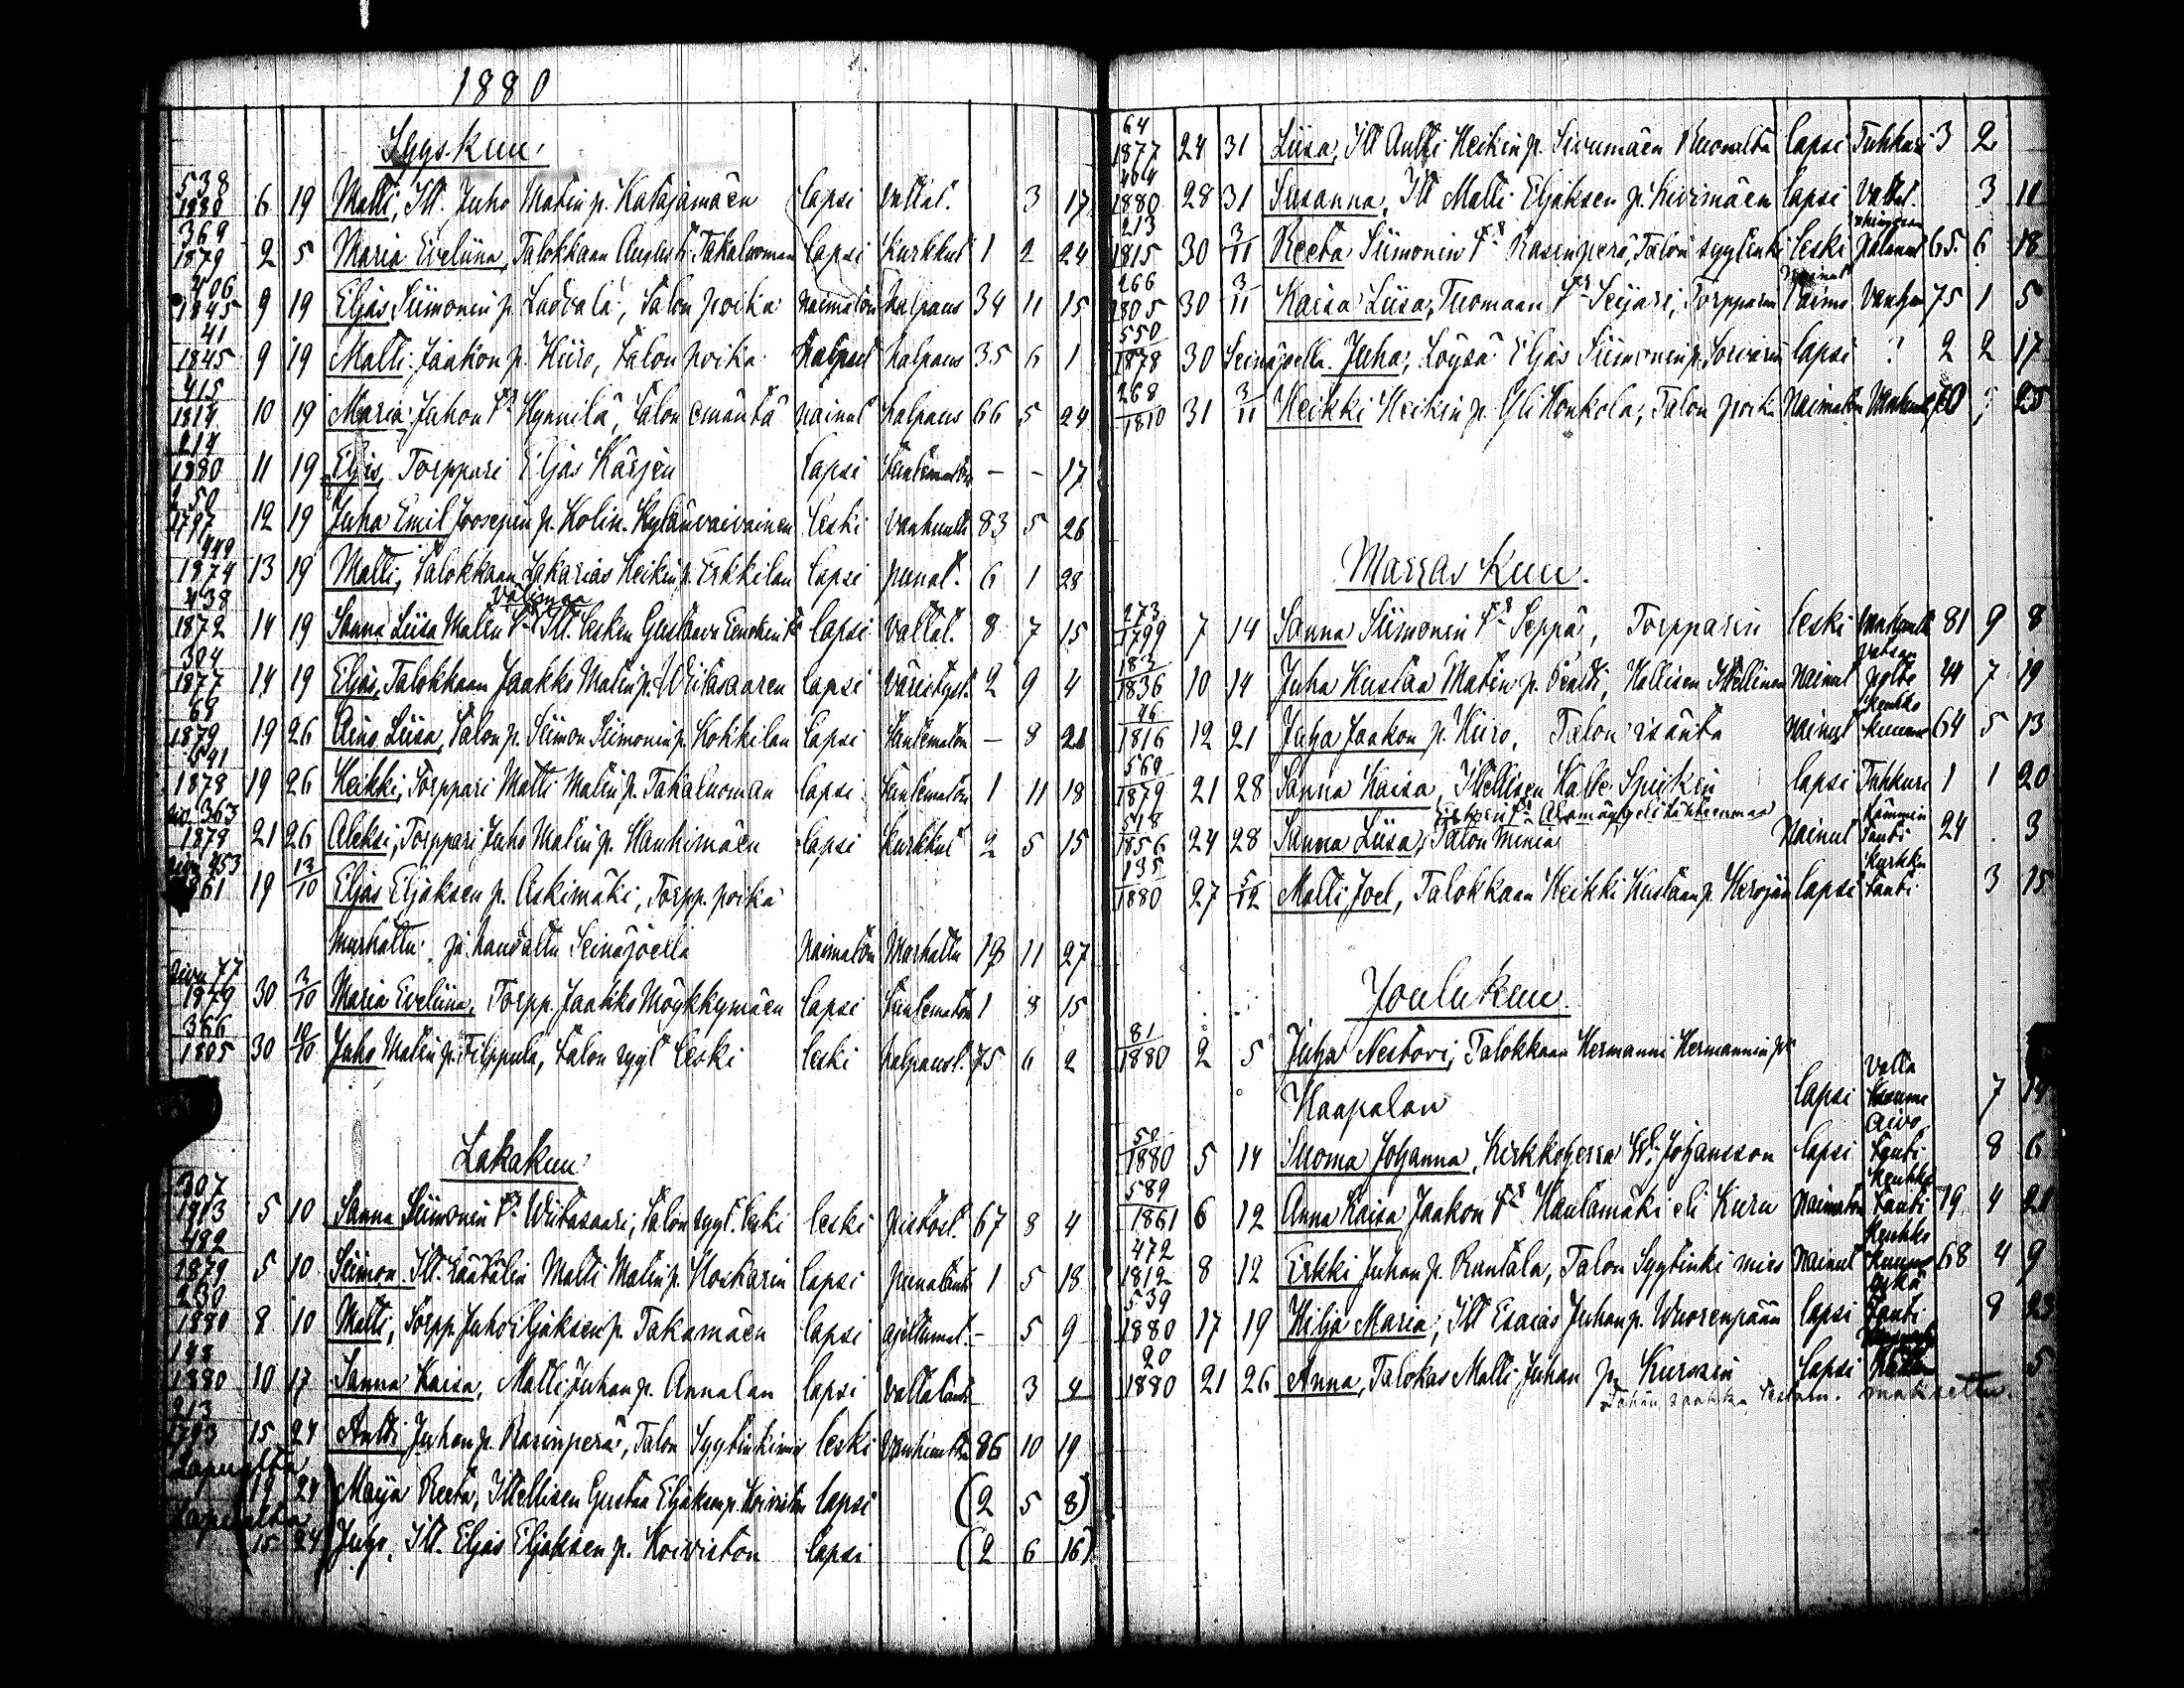 1880
Syyskuu
538
1880 6 19 Matti, Itl. Juho Matin p. Katajamäen lapsi vattat. 3 17
369
1879 2 5 Maria Eveliina, Talokkaan August Takaluoman lapsi kurkkut 1 2 24
406
1845 9 19 Eljas Siimonin p. Ladvala, Talon poika naimaton halpaus 34 11 15
41
1845 9 19 Matti Jaakon p. Kiiro, Talon poika halpaus 35 6 1
415
1814 10 19 Maria Juhon Tr Hynnilä, Talon emäntä nainut halpaus 66 5 24
214
1880 11 19 Eljas, Torppari Eljas Kärjen lapsi tuntematon - - 17
250
1797 12 19 Juha Emil Joosepin p. Kolin. Kylänvaivainen leski vanhuutt 83 5 26
449
1874 13 19 Matti, Talokkaan Sakarias Heikin p. Erkkilän lapsi punat. 6 1 28
438 Välimaa
1872 14 19 Sanna Liisa Matin Tr Itl. lesken Gustaava lapsi Vattat. 8 7 15
304
1877 14 19 Eljas, Talokkaan Jaakko Matin p. Wiitasaaren lapsi väristyst. 2 9 4
68
1879 19 26 Aino Liisa, Talon p. Siimon Siimonin p. Kokkilan lapsi tuntematon - 8 21
541
1878 19 26 Heikki, Torppari Matti Matin p. Takaluoman lapsi tuntematon 1 11 18
siv. 363
1878 21 26 Aleksi, Torppari Juho Matin p. Hauhimäen lapsi kurkkut 2 5 15
1861 19 13/10 Eljas Eljaksen p. Äskimäki, Torpp. poika
murhattu ja haudattu Seinäjoella naimaton Murhattu 19 11 27
sivu 77
1879 30 3/10 Maria Eveliina, Torpp. Jaakko Möykkymäen lapsi tuntematon 1 8 15
366
1805 30 10/10 Juho Matin p. Filppula, Talon syyt leski leski halpaust. 75 6 2
Lokakuu
307
1813 5 10 Sanna Siimonin Tr Wiitasaari, Talon syyt. leski leski pistost. 67 8 4
482
1879 5 10 Siimon Itl. Räätälin Matti Matin p. Koskarin lapsi punataut 1 5 18
230
1880 8 10 Matti, Torpp. Juho Eljaksen p. Takamäen lapsi ajettumat. - 5 9
148
1880 10 17 Sanna Kaisa, Matti Juhan p. Annalan lapsi vattataut 3 4
213
1793 15 24 Antti Juhan p. Rasinperä, Talon Syytinkimies leski Vanhuutta 86 10 19
Lapualta
19 24 Maija Reeta, Itsellisen Gustaa Eljaksen p. Koiviston lapsi (2 5 8)
Lapualta
15 24 Juho, Itl. Eljas Eljaksen p. Koiviston lapsi (2 6 16)
64
1877 24 31 Liisa, Itl Antti Heikin p. Sivumäen Ruonalta lapsi Tuhkuri 3 2
464
1880 28 31 Susanna, Itl Matti Eljaksen p. Kivimäen lapsi Vattat. 3 11
213
1815 30 3/11 Reeta Siimonin Tr Rasinperä, Talon syytinki leski 65 6 18
266
1805 30 3/11 Kaisa Liisa, Tuomaan Tr Seijari, Torpparin vaimo Vanhuu 75 1 5
550
1878 30 Seinäjoella Juha, Löysä Eljas Siimonin p. Sorvarin lapsi ? 2 2 17
268
1810 31 3/11 Heikki Heikin p. Yli Honkola, Talon poika Naimaton Vanhuus 70 3 25
Marraskuu.
273
1799 7 14 Sanna Siimonin Tr Seppä, Torpparin leski Vanhuutt 81 9 8
183
1836 10 14 Juha Kustaa Matin p. Pentti, Hollisen Itsellinen Nainut vatsan polte 44 7 19
46
1816 12 21 Juha Jaakon p. Kiiro, Talon isäntä Nainut keuhko kuume 64 5 13
569
1879 21 28 Sanna Kaisa, Itsellisen Kalle Spickin lapsi Tuhkuri 1 1 20
518
1856 24 28 Sanna Liisa, Talon Miniä Nainut tauti 24 . 3
135
1880 27 5/12 Matti Joel, Talokkaan Heikki Kustaan p. Herojan lapsi kurkku tauti 3 15
Joulukuu
81
1880 2 5 Juha Nestori, Talokkaan Hermanni Hermannin p.
Haapalan lapsi Vatta kuume 7 14
50
1880 5 14 Suoma Johanna, Kirkkoherra W. Johansson lapsi Aivo Tauti 8 6
589
1861 6 12 Anna Kaisa Jaakon Tr Hautamäki eli Kuru Naimaton keuhko Tauti 19 4 21
472
1812 8 12 Erkki Juhan p. Rantala, Talon Syytinki mies Nainut keuhko kuume 68 4 9
539
1880 17 19 Hilja Maria, Itl Esaias Juhan p. Wuorenpään lapsi Tauti 8 23
20
1880 21 26 Anna, Talokas Matti Juhan p. Kurosen lapsi 5
maksettu.